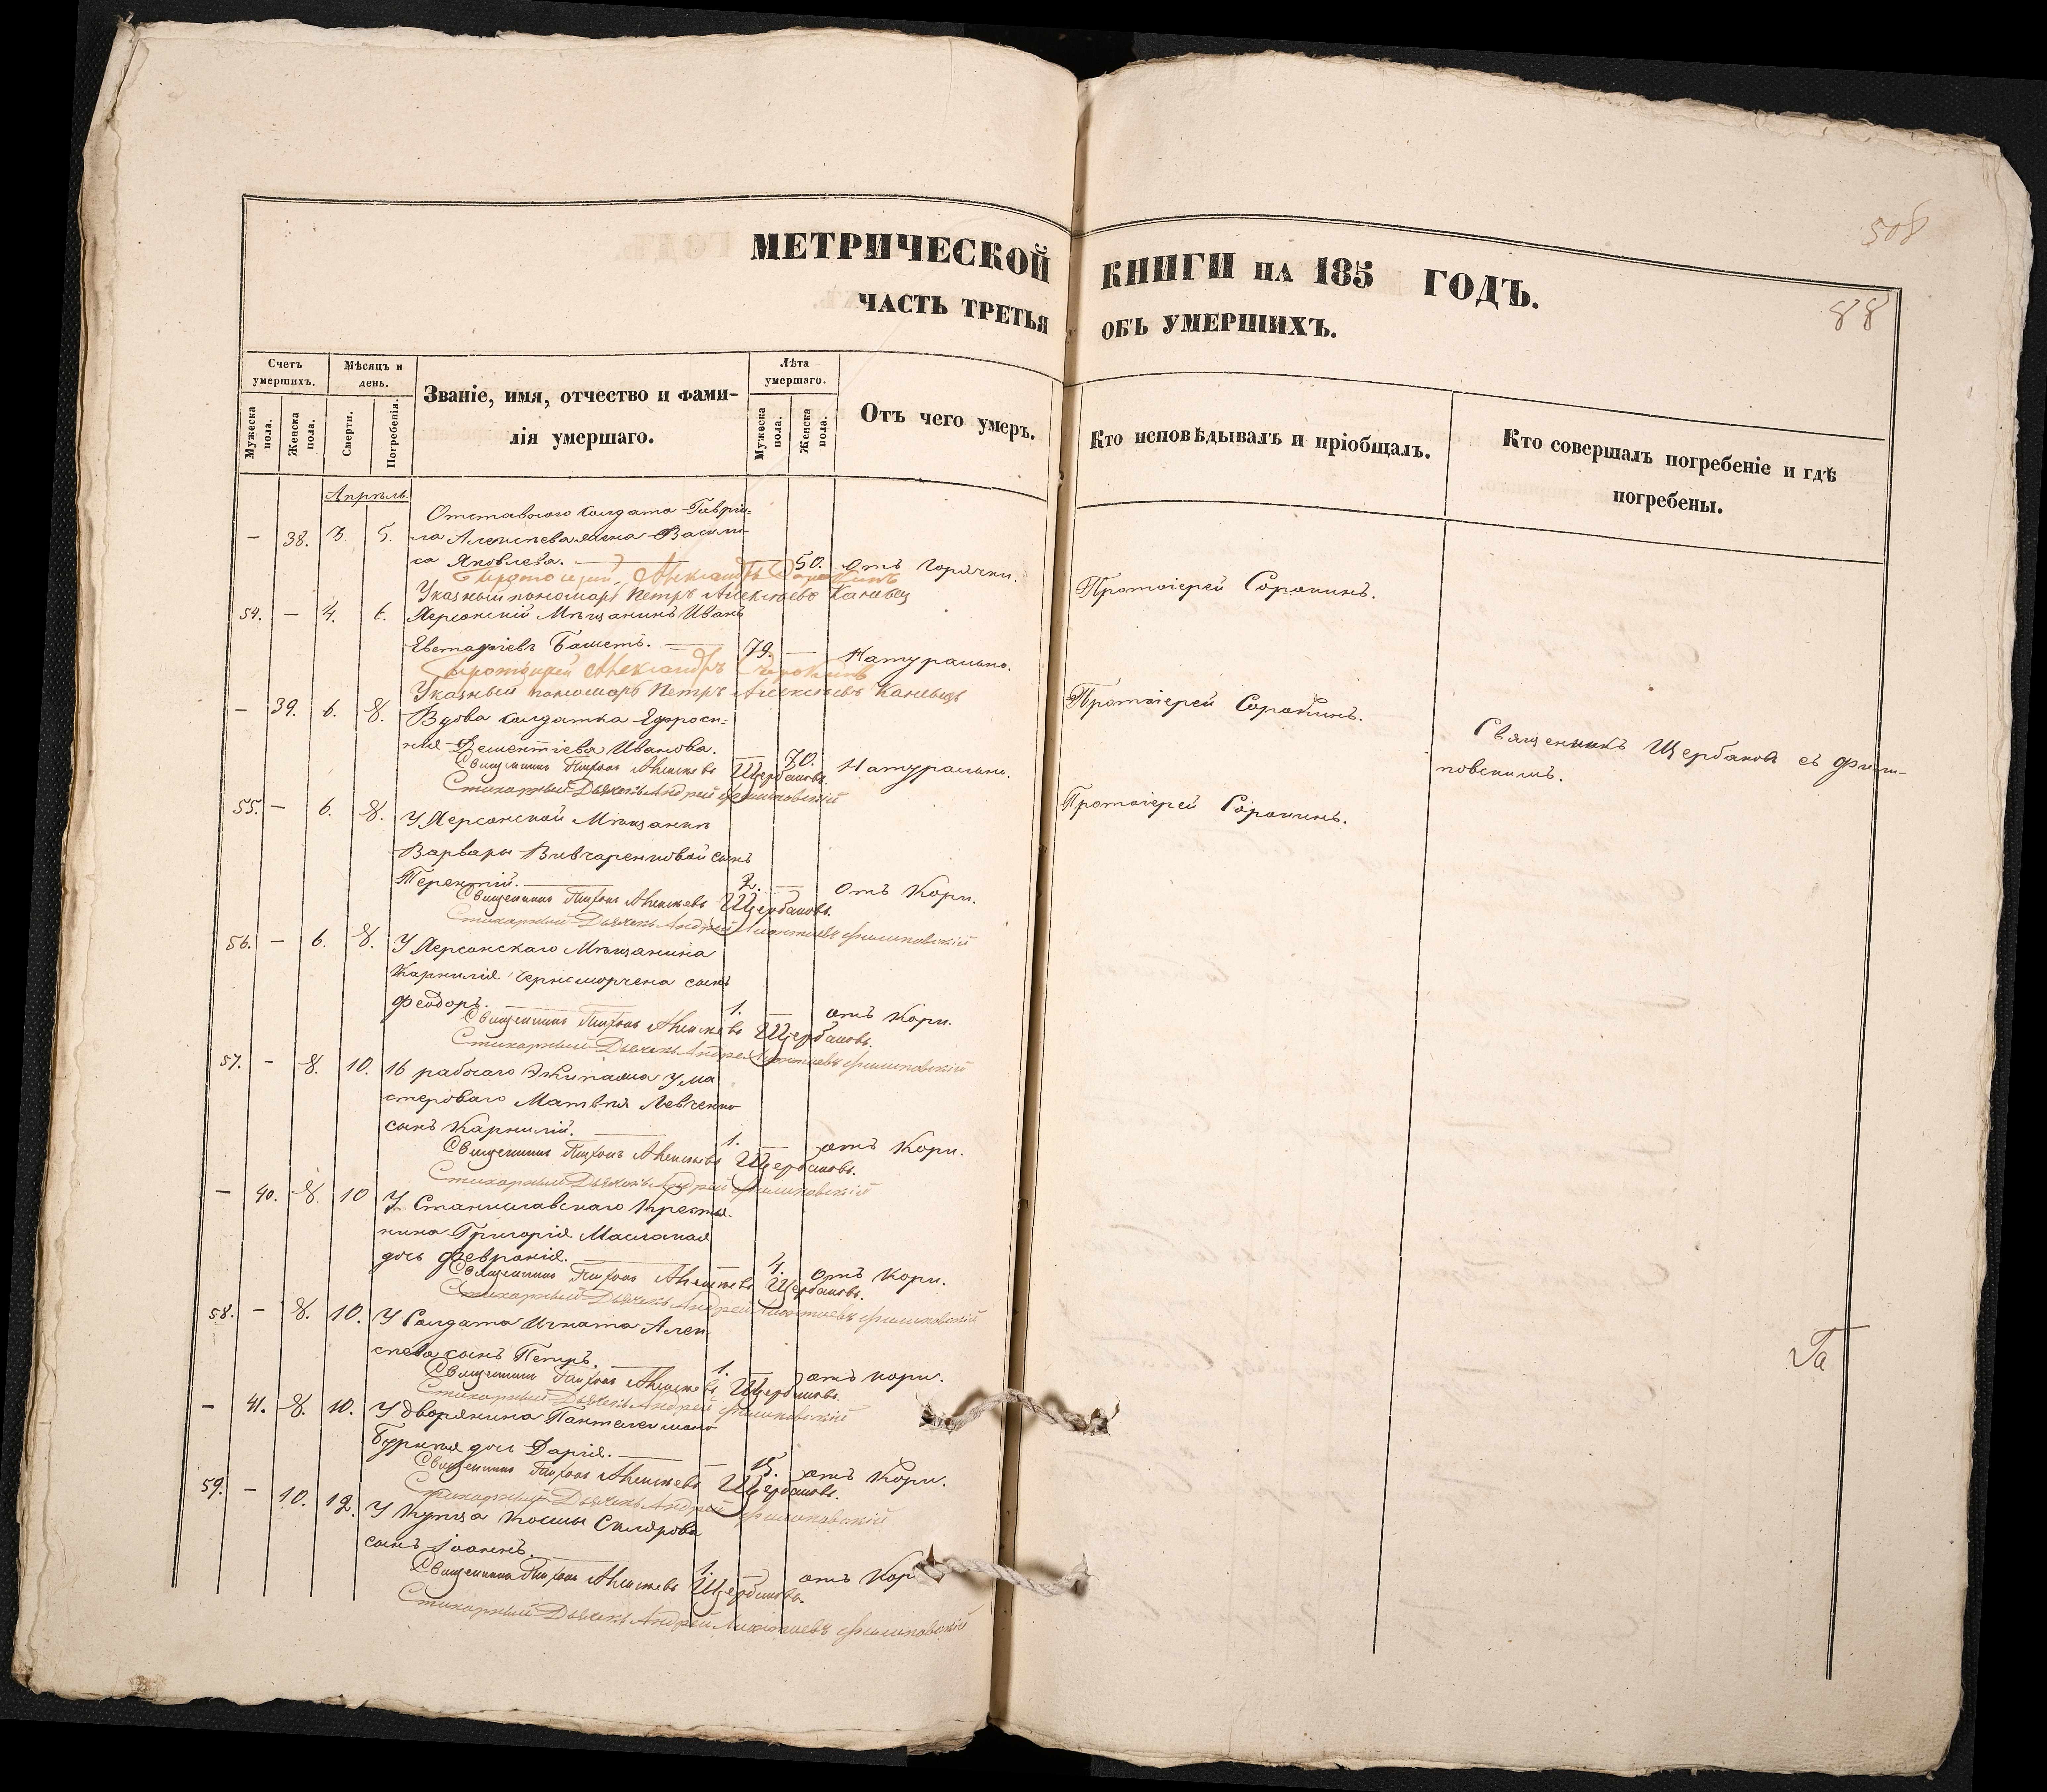 508
МЕТРИЧЕСКОЙ КНИГИ НА 185 ГОДЪ.
88
ЧАСТЬ ТРЕТЬЯ ОБЪ УМЕРШИХЪ.
Счетъ умершихъ.
Мѣсяцъ и день.
Званіе, имя, отчество и фами-
лія умершаго.
Лѣта умершаго.
Отъ чего умеръ.
Кто исповѣдывалъ и пріобщалъ.
Кто совершалъ погребеніе и гдѣ
погребены.
Мужеска пола.
Женска пола.
Смерти.
Погребенія.
Мужеска пола.
Женска пола.
Апрѣль.
Отставного Солдата Гаври-
— 38. 3. 5. ла Алексѣева жена Васили-
са Яковлева. — 50. отъ Горячки.
Протоіерей Александръ Сорокинъ
Протоіерей Сорокинъ.
Указный пономарь Петръ Алексѣевъ Каневец
54. — 4. 6. Херсонскій Мѣщанинъ Иванъ
Евстафіевъ Башетъ. — 79. — Натурально.
Протоіерей Александръ Сорокинъ
Указный пономарь Петръ Алексѣевъ Каневецъ
Протоіерей Сорокинъ.
— 39. 6. 8. Вдова Солдатка Ефроси-
нія Дементіева Иванова. — 70. Натурально.
Священникъ Тихонъ Алексѣевъ Щербаковъ.
Священникъ Щербаковъ съ Фили-
повскимъ.
Стихарный Дьячекъ Андрей Филиповскій
Протоіерей Сорокинъ.
55. — 6. 8. У Херсонской Мѣщанки
Варвары Вивчаренковой сынъ
Терентій. — 2. — отъ Кори.
Священникъ Тихонъ Алексѣевъ Щербаковъ.
Стихарный Дьячекъ Андрей Леонтіевъ Филиповскій
56. — 6. 8. У Херсонскаго Мѣщанина
Карнилія Черноморчена сынъ
Феодоръ. — 1. — отъ Кори.
Священникъ Тихонъ Алексѣевъ Щербаковъ.
Стихарный Дьячекъ Андрей Леонтіевъ Филиповскій
57. — 8. 10. 16 рабочаго Экипажа У ма
стероваго Матвѣя Левченко
сынъ Карнилій. — 1. — отъ Кори.
Священникъ Тихонъ Алексѣевъ Щербаковъ.
Стихарный Дьячекъ Андрей Филиповскій
— 40. 8. 10 У Станиславскаго Крестья-
нина Григорія Маслакая
дочь Февронія. — 4. отъ Кори.
Священникъ Тихонъ Алексѣевъ Щербаковъ.
Стихарный Дьячекъ Андрей Леонтіевъ Филиповскій
58. — 8. 10. У Солдата Игната Алек-
сѣева сынъ Петръ. — 1. — отъ кори.
Священникъ Тихонъ Алексѣевъ Щербаковъ.
Стихарный Дьячекъ Андрей Филиповскій
— 41. 8. 10. У Дворянина Пантелеимона
дочь Дарія. — 15. отъ Кори.
Священникъ Тихонъ Алексѣевъ Щербаковъ.
Стихарный Дьячекъ Андрей Филиповскій
59. — 10. 12. У Купца Космы Склярова
сынъ Іоаннъ. 1. отъ Кор
Священникъ Тихонъ Алексѣевъ Щербаковъ.
Стихарный Дьячекъ Андрей Леонтіевъ Филиповскій